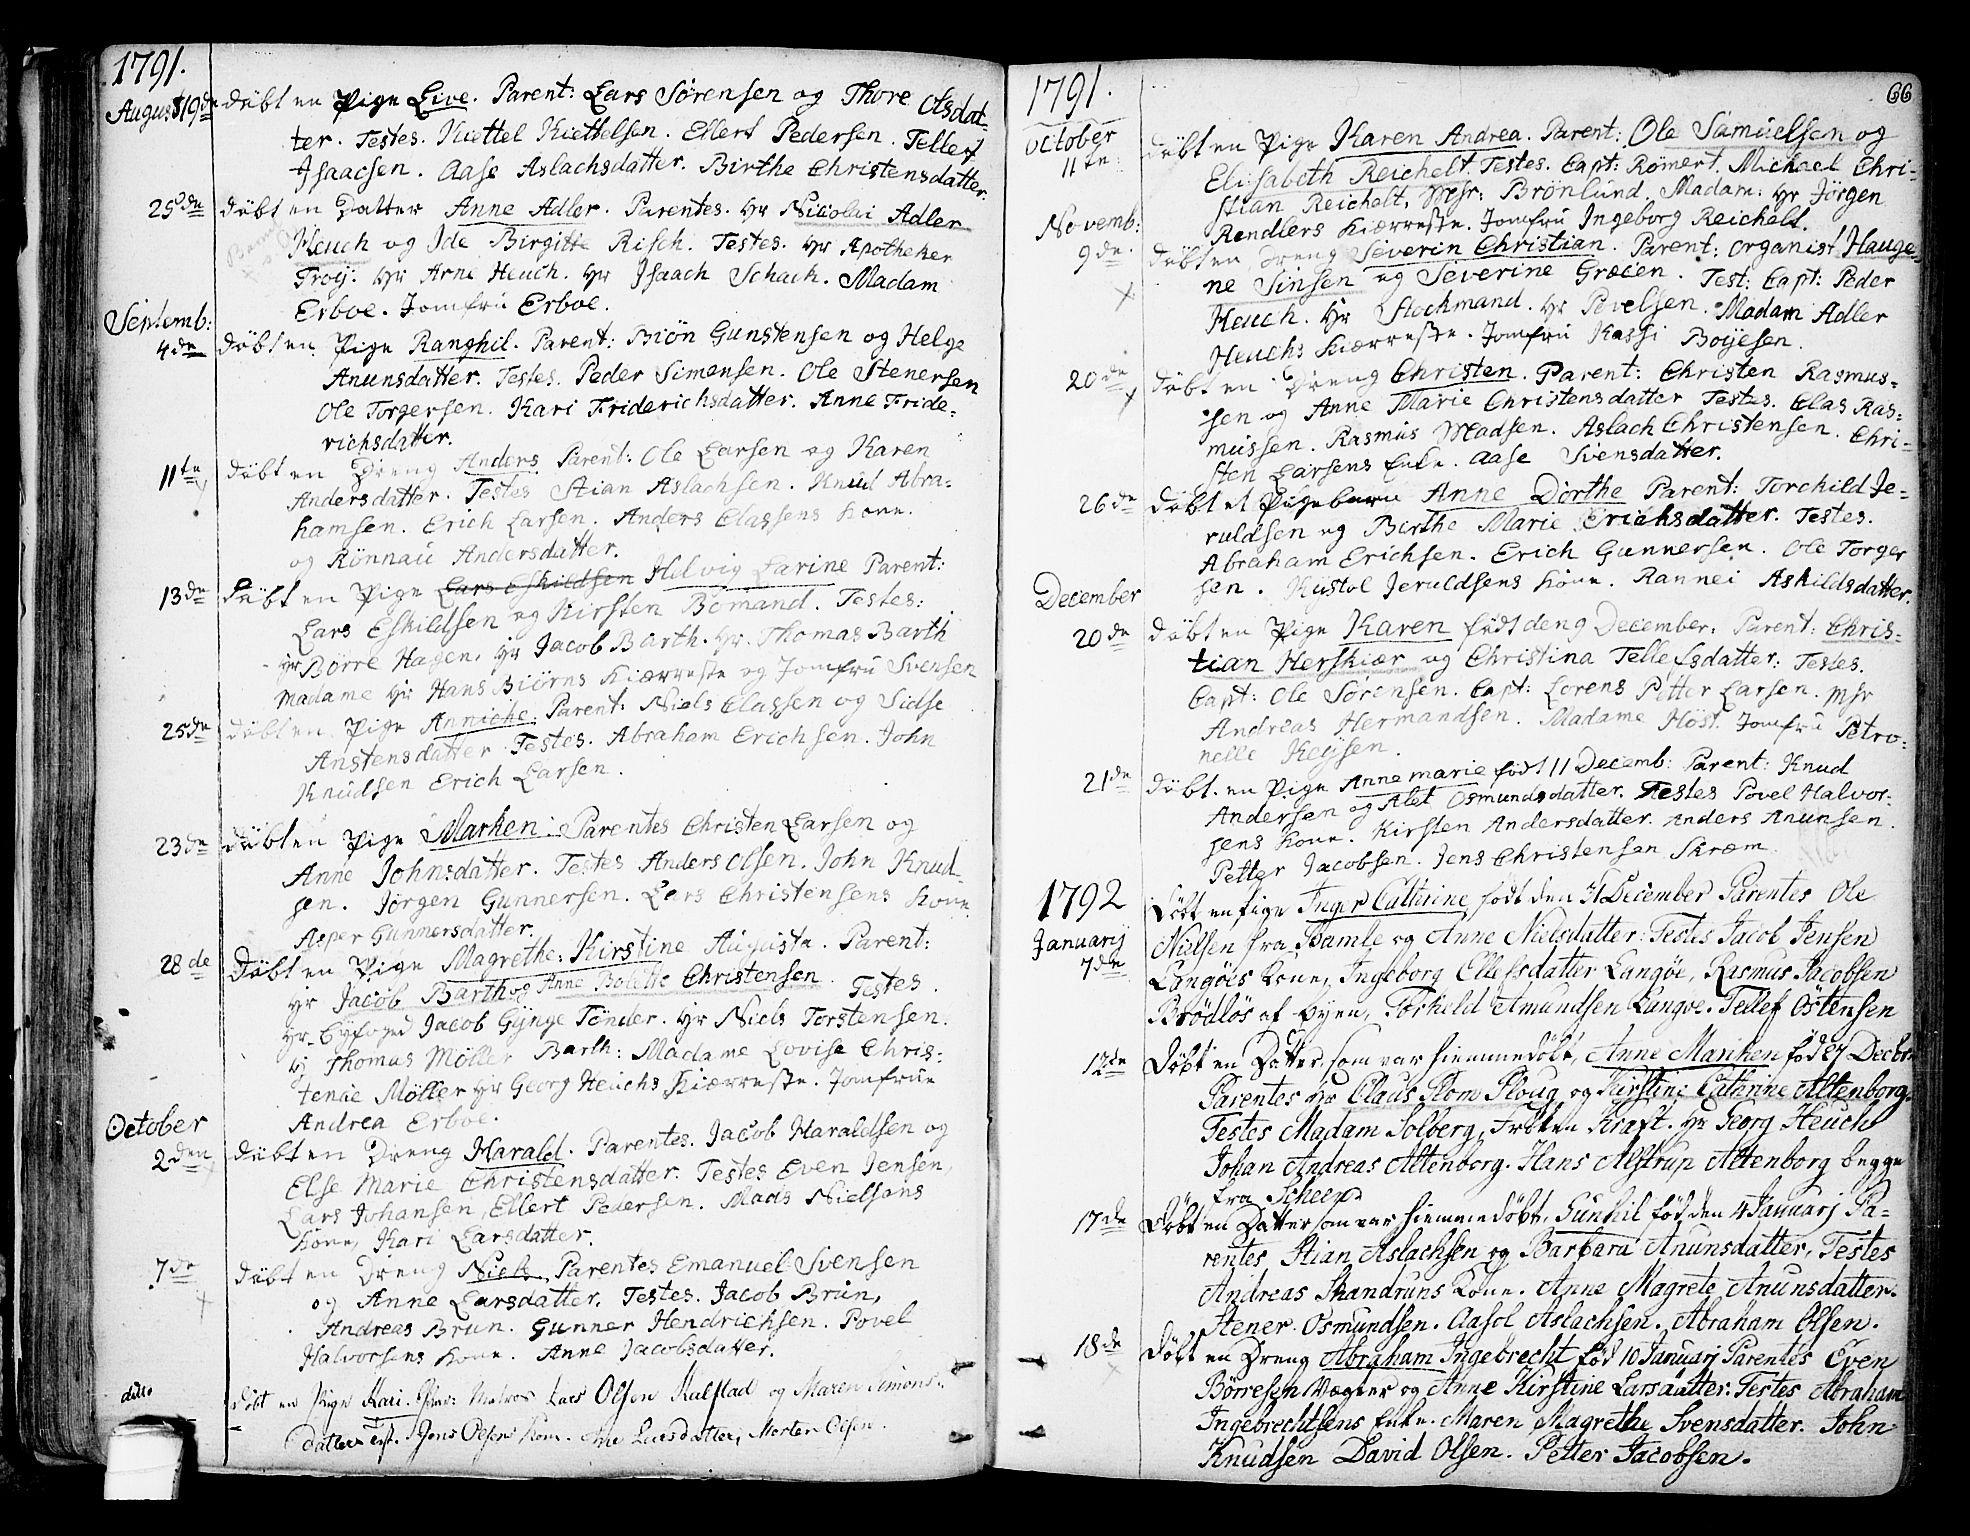 1791.
August 19de døbt en Pige Live. Parent: Lars Sørensen og Thore Olsdat-
ter. Testes. Kiettel Kiettelsen. Ellert Pedersen. Tellef
Isaacsen. Aase Aslachsdatter. Birthe Christensdatter.
25de døbt en Datter Anne Adler. Parentes. Hr Nicolai Adler
Heuch og Ide Birgitte Risch. Testes. Hr Apotheker
Troij. Hr Arne Heuch. Hr Isaach Schach. Madam
Erboe. Jomfru Erboe.
Septemb:
4de døbt en Pige Ranghil. Parent: Biön Gunstensen og Helge
Anunsdatter. Testes. Peder Simensen. Ole Stenersen
Ole Torgersen. Kari Friderichsdatter. Anne Fride-
richsdatter.
11te døbt en Dreng Anders Parent: Ole Larsen og Karen
Andersdatter. Testes Stian Aslachsen. Knud Abra-
hamsen. Erich Larsen. Anders Classens Kone.
og Rönnau Andersdatter.
13de døbt en Pige Lars Eskildsen Helvig Larine Parent:
Lars Eskildsen og Kirsten Bomand. Testes:
Hr Börre Hagen, Hr Jacob Barth. Hr. Thomas Barth
Madame Hr Hans Biörns Kiærreste og Jomfru Svensen
25de døbt en Pige Anniche: Parent: Niels Classen og Sidse
Anstensdatter Testes. Abraham Erichsen. John
Knudsen Erich Larsen.
23de døbt en Pige Marken: Parentes Christen Larsen og
Anne Johnsdatter. Testes Anders Olsen. John Knud-
sen. Jörgen Gunnersen. Lars Christensens Kone
Asper Gunnersdatter.
28de Døbt en Pige Magrethe Kirstine Augusta. Parent:
Hr Jacob Barth og Anne Bolette Christensen. Testes.
Hr Byfoged Jacob Gynge Tönder. Hr Niels Torstensen.
Hj Thomas Möller Barth: Madame Lovise Chris-
tence Möller Hr Georg Heuchs Kiærreste. Jomfrue
Andrea Erboe.
October
2den døbt en Dreng Harald. Parentes. Jacob Haraldsen og
Else Marie Christensdatter. Testes Even Jensen,
Lars Johansen, Ellert Pedersen. Mads Nielsens
Kone, Kari Larsdatter.
7de døbt en Dreng Niels, Parentes Emanuel Svensen
og Anne Larsdatter. Testes. Jacob Brun,
Andreas Brun. Gunner Hendrichsen. Povel
Halvorsens Kone. Anne Jacobsdatter.
ditto døbt en Pige Kari. Par: Matros Lars Olsen Kulstad og Maren Simons-
datter Test. Jens Olsens Kone. Ane Larsdatter, Morten Olsen.
66
1791.
October
11te døbt en Pige Karen Andrea. Parent: Ole Samuelsen og
Elisabeth Reichelt. Testes. Capt: Römert. Michael Chri-
stian Reichelt, Msr: Brönlund. Madam: Hr Jörgen
Rendlers Kiærreste. Jomfru Ingeborg Reichelt.
Novemb:
9de døbt en Dreng Severin Christian. Parent: Organist Hauge-
ne Sinsen og Severine Græen. Test: Capt: Peder
Heuch. Hr Stochmand. Hr Povelsen. Madam Adler
Heuchs Kiærreste. Jomfru Kassi Boijesen.
20de døbt en Dreng Christen. Parent: Christen Rasmus-
sen og Anne Marie Christensdatter Testes. Clas Ras-
mussen. Rasmus Madsen. Aslach Christensen. Chri-
sten Larsens Enke. Aase Svensdatter.
26de døbt et Pigebarn Anne Dorthe Parent: Torchild Je-
ruldsen og Birthe Marie Erichsdatter. Testes.
Abraham Erichsen. Erich Gunnersen. Ole Torger
sen. Kustol Jeruldsens Kone. Rannei Askildsdatter.
December
20de døbt en Pige Karen født den 9 December. Parent: Chris-
tian Herskiær og Christina Tellefsdatter: Testes.
Capt: Ole Sørensen. Capt: Lorens Petter Larsen. Msr
Andreas Hermandsen. Madame Höst. Jomfru Petro-
nelle Keysen.
21de døbt en Pige Anne marie født 11 Decemb: Parent: Knud
Andersen og Alet Osmundsdatter. Testes Povel Halvor-
sens Kone. Kirsten Andersdatter. Anders Anunsen.
Petter Jacobsen. Jens Christensen Skræm.
1792
Januarij
7de Døbt en Pige Inger Cathrine, født den 31 December Parentes Ole
Nielsen fra Bamle og Anne Nielsdatter: Testes Jacob Jensen
Langöes Kone, Ingeborg Ellefsdatter Langöe, Rasmus Jacobsen
Brödlös af Byen, Torkild Amundsen Langoe. Tellef Östensen
12de Døbt en Datter, som var hiemmedøbt, Anne Mariken fød 27 Decbr
Parentes Hr Claus Plom Ploug og Kirstine Cathrine Altenborg.
Testes Madam Solberg, Frøken Kraft. Hr Georg Heuch
Johan Andreas Altenborg. Hans Alstrup Altenborg begge
fra Scheen.
17de Døbt en Datter som var hiemmedøbt, Gunhil fød den 4 Januarj Pa-
rentes Stian Aslachsen og Barbara Anunsdatter, Testes
Andreas Skandruns Kone. Anne Magrete Anunsdatter.
Stener Osmundsen. Aasol Aslachsen. Abraham Olsen.
18de Døbt en Dreng Abraham Ingebrecht fød 10 Januarj Parentes Even
Börresen Vægter og Anne Kirstine Larsdatter. Testes Abraham
Ingebrechtsens Enke. Maren Magrethe Svensdatter. John
Knudsen David Olsen. Petter Jacobsen.